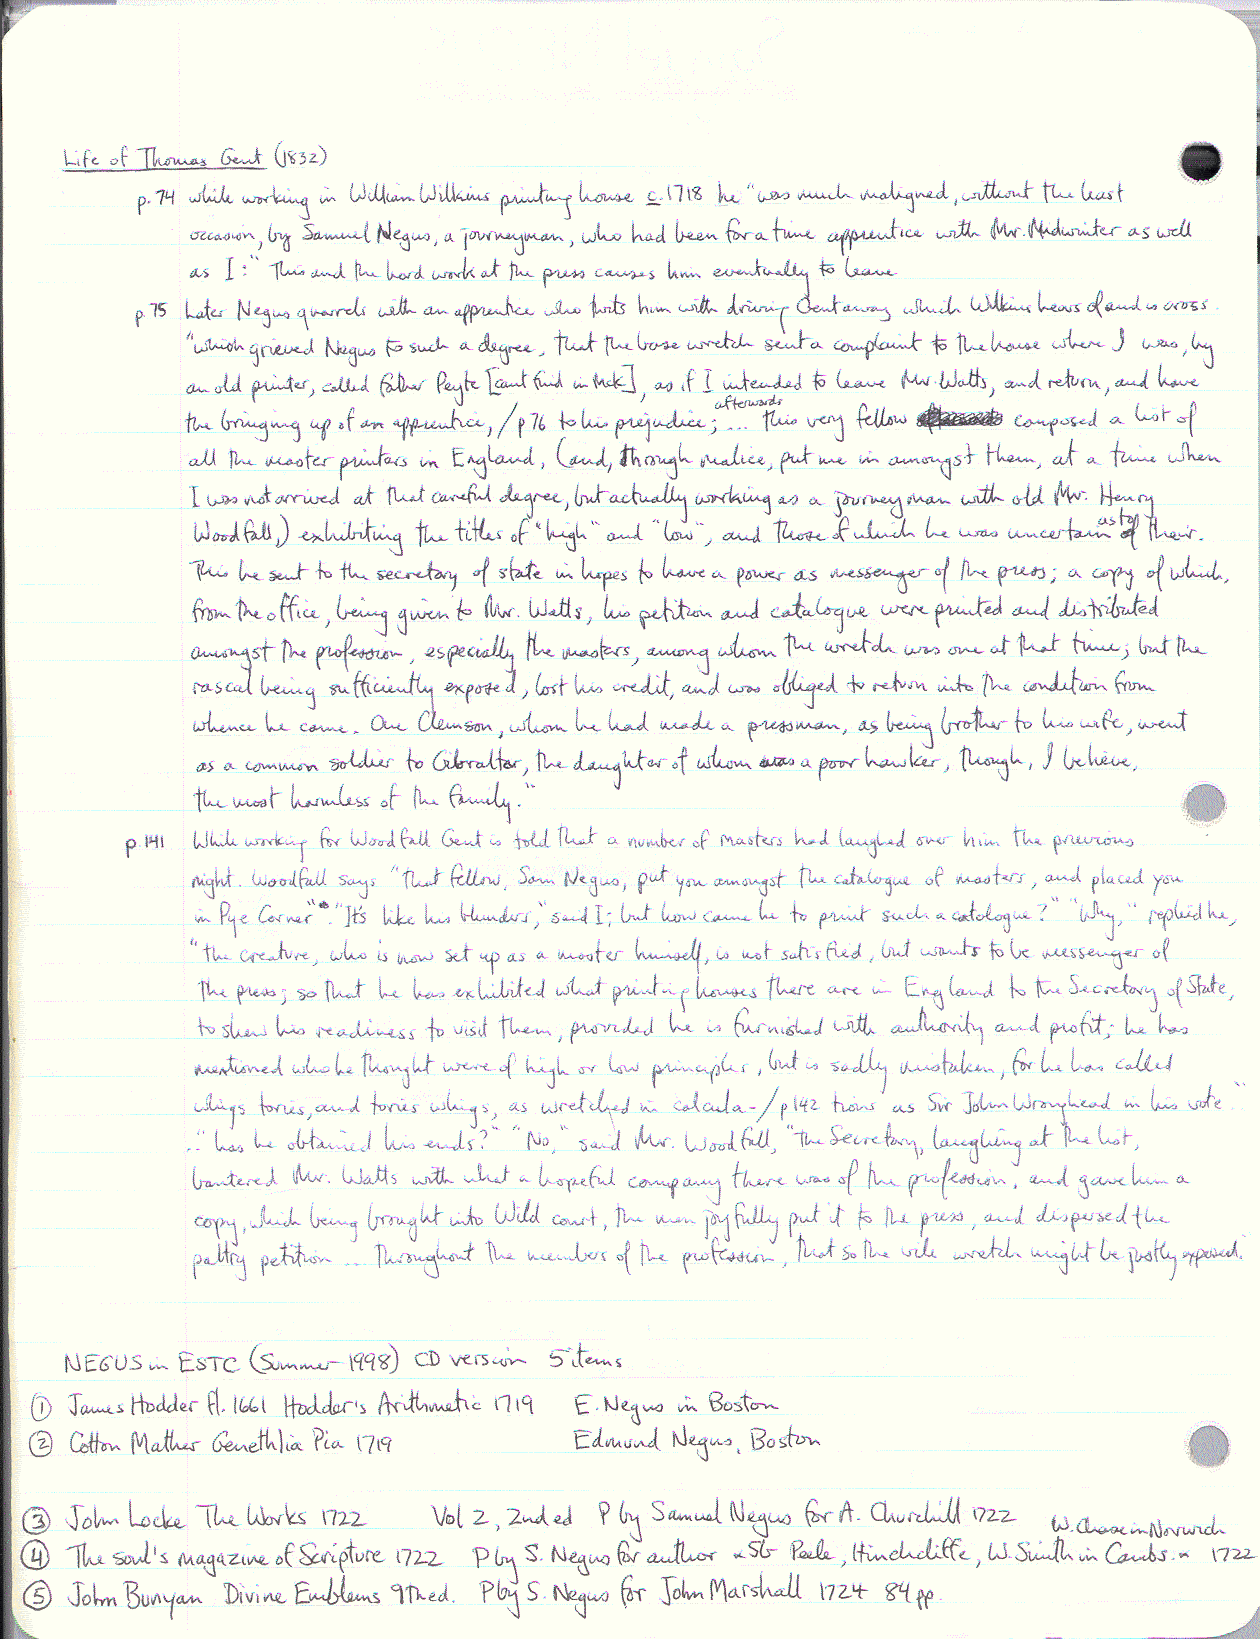 Life of Thomas Gent (1832)
p.74 while working in William Wilkins printing house c.1718 he "was much maligned, without the least
occasion, by Samuel Negus, a journeyman, who had been for a time apprentice with Mr. Midwinter as well
as I:" This and the hard work at the press causes him eventually to leave
p.75 Later Negus quarrels with an apprentice who twits him with driving Gent away which Wilkins hears of and is cross.
"which grieved Negus to such a degree, that the base wretch sent a complaint to the house where I was, by
an old printer, called father Peyte [cant find in McK], as if I intended to leave Mr. Watts, and return, and have
the bringing up of an apprentice, /p76 to his prejudice; ... afterwards this very fellow composed a list of
all the master printers in England, (and, through malice, put me in amongst them, at a time when
I was not arrived at that careful degree, but actually working as a journeyman with old Mr. Henry
Woodfall,) exhibiting the titles of "high" and "low", and those of which he was uncertain as to their.
This he sent to the secretary of state in hopes to have a power as messenger of the press; a copy of which,
from the office, being given to Mr. Watts, his petition and catalogue were printed and distributed
amongst the profession, especially the masters, among whom the wretch was one at that time; but the
rascal being sufficiently exposed, lost his credit, and was obliged to return into the condition from
whence he came. One Clemson, whom he had made a pressman, as being brother to his wife, went
as a common soldier to Gibraltar, the daughter of whom was a poor hawker, though, I believe,
the most harmless of the family."
p.141 While working for Woodfall Gent is told that a number of masters had laughed over him the previous
night. Woodfall says "that fellow, Sam Negus, put you amongst the catalogue of masters, and placed you
in Pye Corner". "It's like his blunders," said I; but how came he to print such a catalogue?" "Why," replied he,
"the creature, who is now set up as a master himself, is not satisfied, but wants to be messenger of
the press; so that he has exhibited what printing houses there are in England to the Secretary of State,
to shew his readiness to visit them, provided he is furnished with authority and profit; he has
mentioned who he thought were of high or low principles, but is sadly mistaken, for he has called
whigs tories, and tories whigs, as wretched in calcula-/p142 tions as Sir John Wronghead in his vote"
..." has he obtained his ends?" "No," said Mr. Woodfall, "the Secretary, laughing at the list,
bantered Mr. Watts with what a hopeful company there was of the profession, and gave him a
copy, which being brought into Wild court, the men joyfully put it to the press, and dispersed the
paltry petition ... throughout the members of the profession, that so the vile wretch might be justly exposed."
NEGUS in ESTC (Summer 1998) CD version 5 items
① James Hodder fl. 1661 Hodder's Arithmetic 1719 E. Negus in Boston
② Cotton Mather Genethlia Pia 1719 Edmund Negus, Boston
③ John Locke The Works 1722 Vol 2, 2nd ed P by Samuel Negus for A. Churchill 1722
W. Chase in Norwich
④ The soul's magazine of Scripture 1722 P by S. Negus for author Peele, Hinchcliffe, W. Smith in Cambs. 1722
⑤ John Bunyan Divine Emblems 9th ed. P by S. Negus for John Marshall 1724 84 pp.